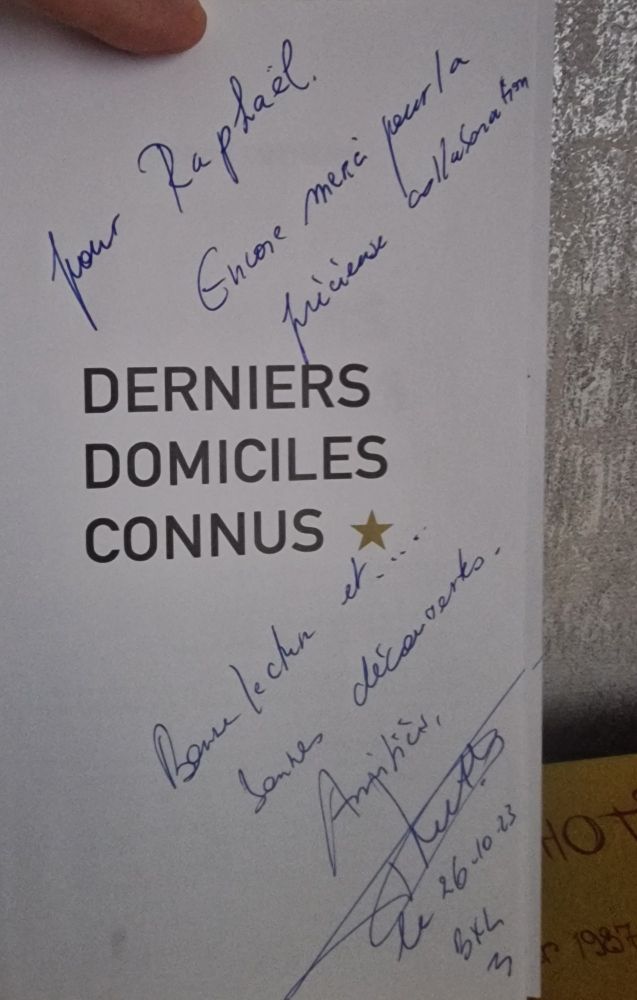 pour Raphaël.
Encore merci pour la
précieuse collaboration
DERNIERS
DOMICILES
CONNUS
Bonne lecture et.....
bonnes découvertes.
Amitiés,
le 26.10.23
BXL
HOT
1987